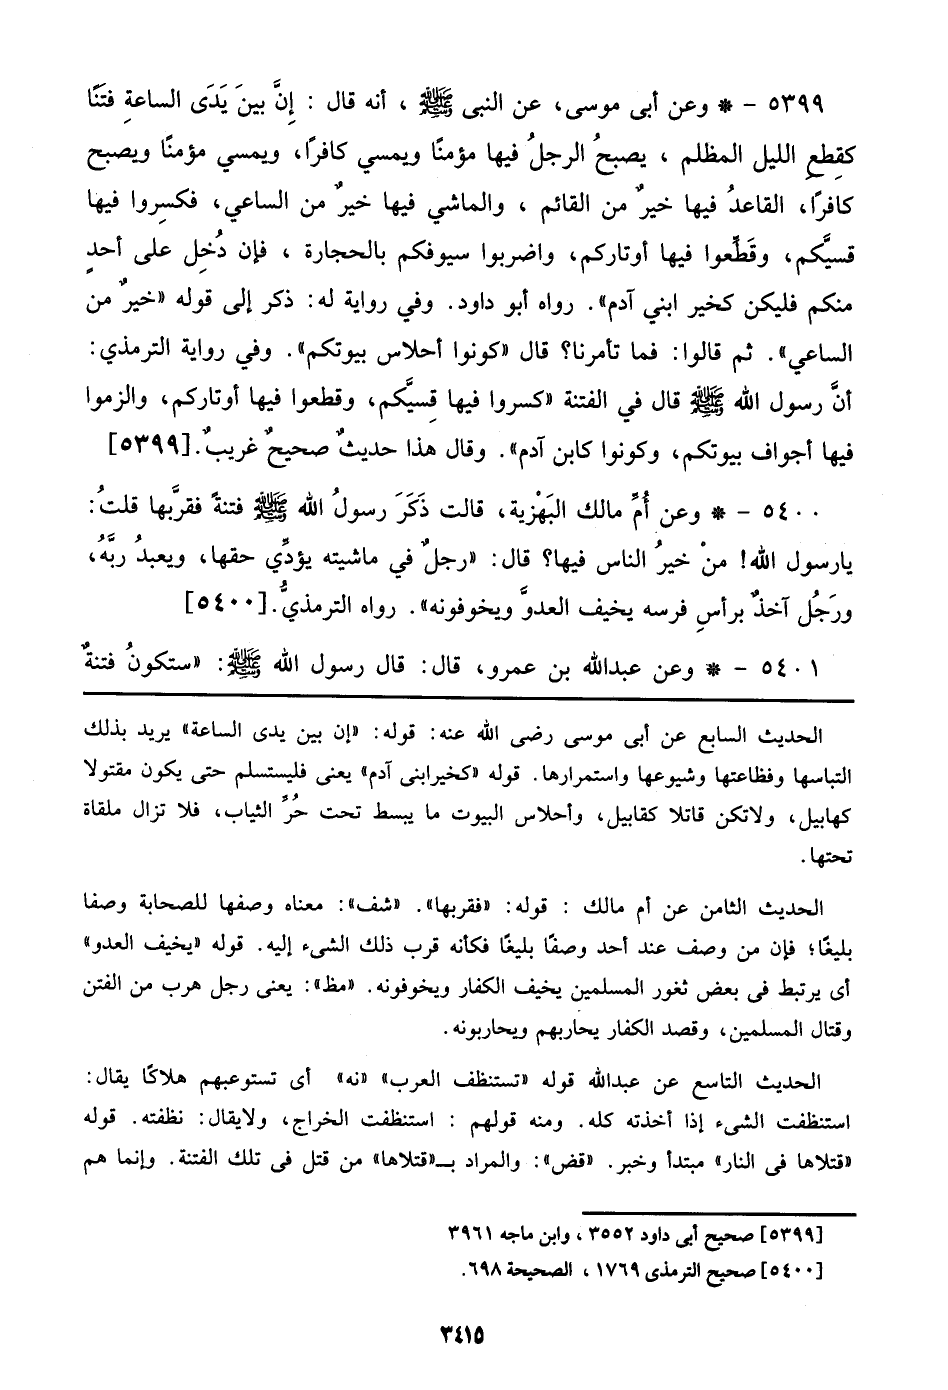 ٥٣٩٩ - * وعن أبى موسى، عن النبى ﷺ ، أنه قال : إِنَّ بينَ يَدَى الساعةِ فتَنًا
كقِطعِ الليل المظلم ، يصبحُ الرجلُ فيها مؤمنًا ويمسي كافرًا، ويمسي مؤمنًا ويصبح
كافرًا، القاعدُ فيها خيرٌ من القائم ، والماشي فيها خيرٌ من الساعي، فكسِروا فيها
قسيَّكم، وقَطِّعوا فيها أوتاركم، واضربوا سيوفكم بالحجارة ، فإن دُخِل على أحدٍ
منكم فليكن كخير ابني آدم». رواه أبو داود. وفي رواية له: ذكر إلى قوله «خيرٌ من
الساعي». ثم قالوا: فما تأمرنا؟ قال «كونوا أحلاس بيوتكم». وفي رواية الترمذي:
أنَّ رسول الله ﷺ قال في الفتنة «كسروا فيها قسِيَّكم، وقطعوا فيها أوتاركم، والزموا
فيها أجواف بيوتكم، وكونوا كابن آدم». وقال هذا حديثٌ صحيحٌ غريبٌ.[٥٣٩٩]
٥٤٠٠ - * وعن أُمِّ مالك البَهْزية، قالت ذَكَرَ رسولُ الله ﷺ فتنةً فقربَّها قلتُ:
يارسول الله! منْ خيرُ الناس فيها؟ قال: «رجلٌ في ماشيته يؤدِّي حقها، ويعبدُ ربَّهُ،
ورَجُل آخذٌ برأسِ فرسه يخيف العدوَّ ويخوفونه». رواه الترمذيُّ.[٥٤٠٠]
٥٤٠١ - * وعن عبدالله بن عمرو، قال: قال رسول الله ﷺ: «ستكونُ فتنةٌ
الحديث السابع عن أبى موسى رضى الله عنه: قوله: «إن بين يدى الساعة» يريد بذلك
التباسها وفظاعتها وشيوعها واستمرارها. قوله «كخيرابنى آدم» يعنى فليستسلم حتى يكون مقتولا
كهابيل، ولاتكن قاتلا كقابيل، وأحلاس البيوت ما يبسط تحت حُرِّ الثياب، فلا تزال ملقاة
تحتها.
الحديث الثامن عن أم مالك : قوله: «فقربها». «شف»: معناه وصفها للصحابة وصفا
بليغًا؛ فإن من وصف عند أحد وصفًا بليغًا فكأنه قرب ذلك الشىء إليه. قوله «يخيف العدو»
أى يرتبط فى بعض ثغور المسلمين يخيف الكفار ويخوفونه. «مظ»: يعنى رجل هرب من الفتن
وقتال المسلمين، وقصد الكفار يحاربهم ويحاربونه.
الحديث التاسع عن عبدالله قوله «تستنظف العرب» «نه» أى تستوعبهم هلاكًا يقال:
استنظفت الشىء إذا أخذته كله. ومنه قولهم : استنظفت الخراج، ولايقال: نظفته. قوله
«قتلاها فى النار» مبتدأ وخبر. «قض»: والمراد بـ«قتلاها» من قتل فى تلك الفتنة. وإنما هم
[٥٣٩٩] صحيح أبى داود ٣٥٥٢ ، وابن ماجه ٣٩٦١
[٥٤٠٠] صحيح الترمذى ١٧٦٩ ، الصحيحة ٦٩٨.
٣٤١٥